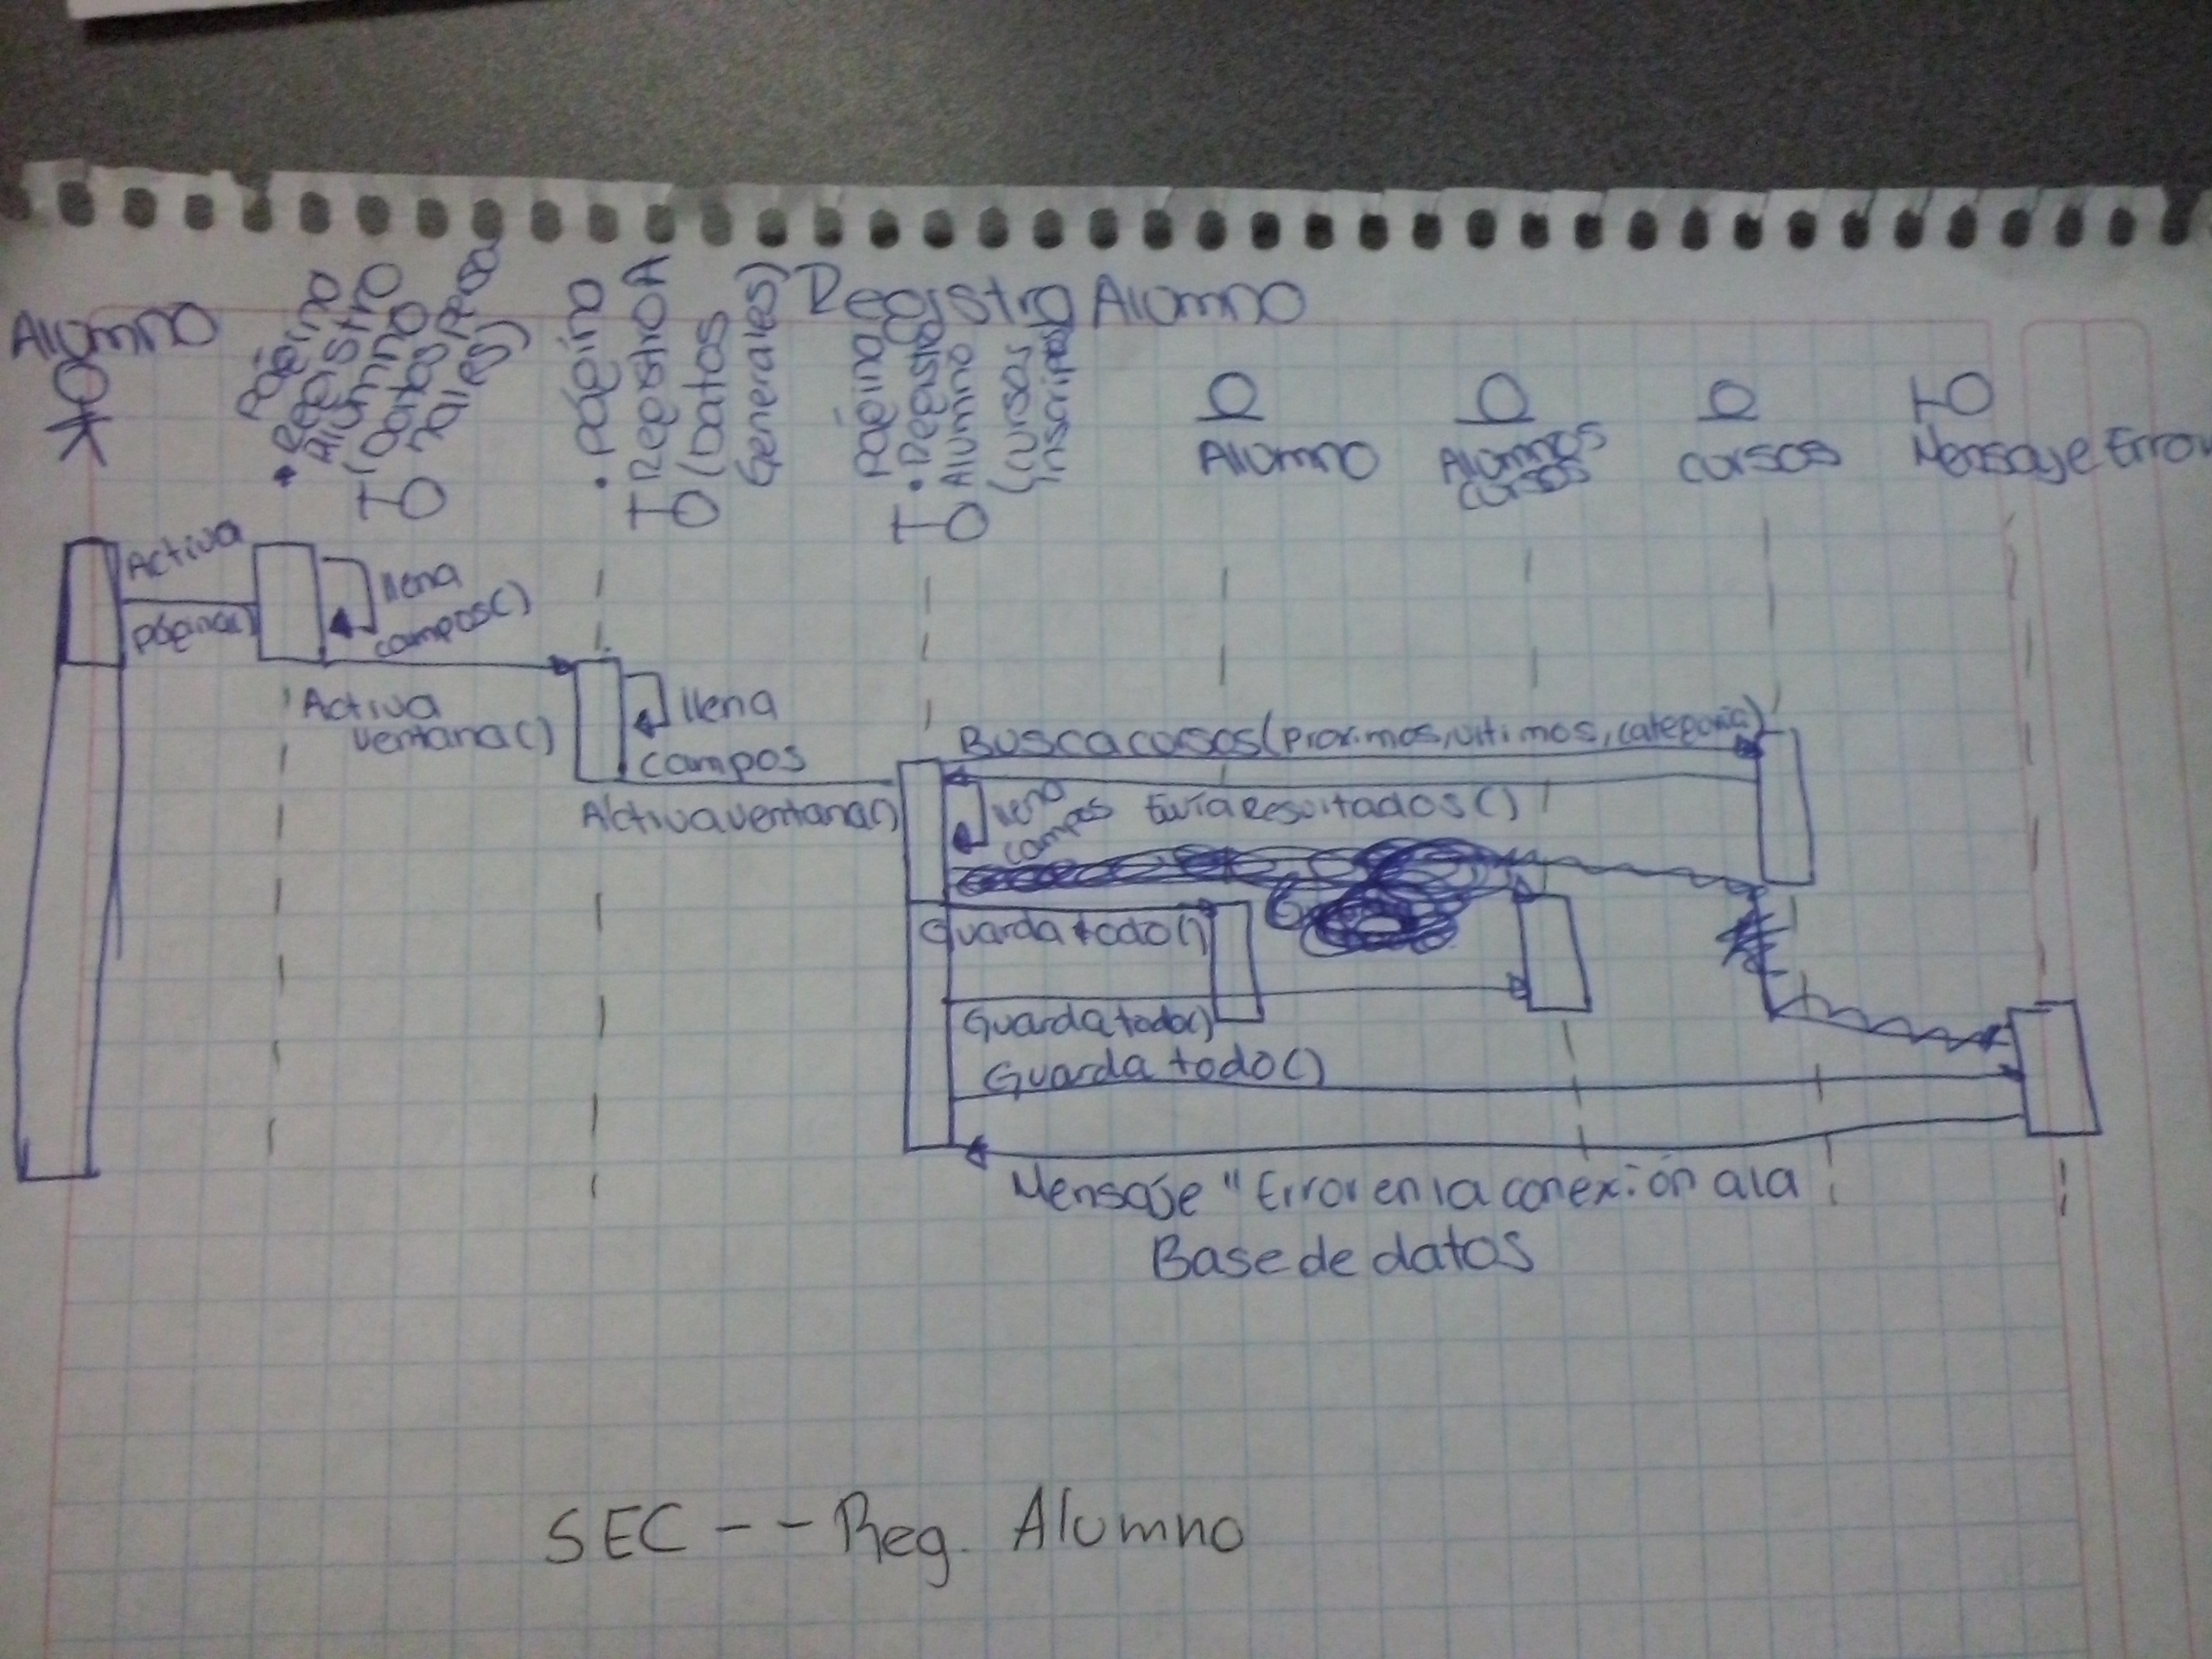 Registro Alumno
Alumno
Página
• Registro
Alumno
(Datos Perso
nales)
• página
Registro A
(Datos
Generales)
página
• Registro
Alumno
(Cursos
inscripción
Alumno
Alumnos
cursos
cursos
Mensaje Error
Activa
página()
llena
campos()
Activa
ventana()
llena
campos
Activaventana()
Busca cursos(proximos, ultimos, categoria)
llena
campos
EnvíaResultados()
Guarda todo()
Guarda todo()
Guarda todo()
Mensaje "Error en la conexión a la
Base de datos
SEC -- Reg. Alumno